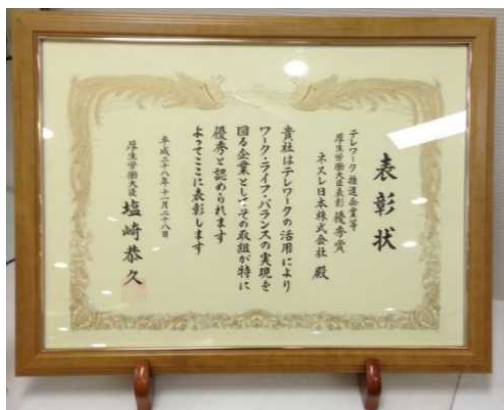 表彰状
テレワーク推進企業等
厚生労働大臣表彰 優秀賞
ネスレ日本株式会社 殿
貴社はテレワークの活用により
ワーク・ライフ・バランスの実現を
図る企業としてその取組が特に
優秀と認められます
よってここに表彰します
平成二十八年十一月二十八日
厚生労働大臣 塩崎恭久